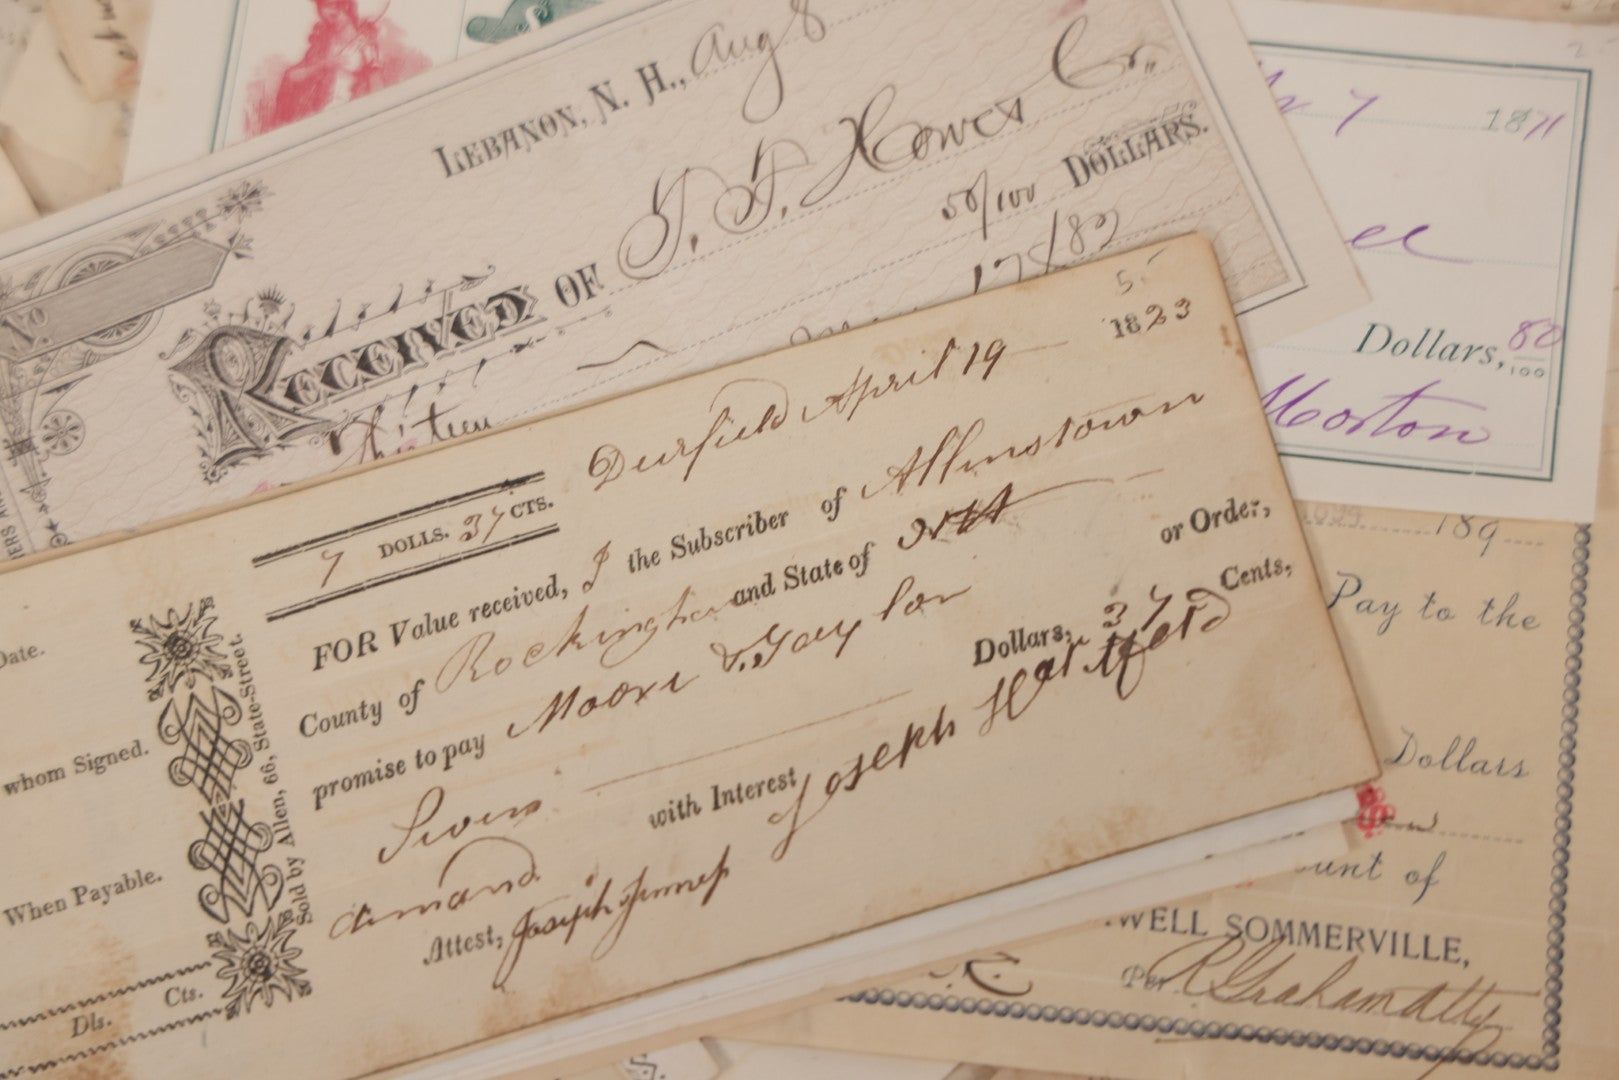 LEBANON, N. H., Aug 8
RECEIVED OF
50/100 DOLLARS.
No
Thirteen
1871
Dollars, 80/100
Morton
189
Pay to the
Dollars
unt of
WELL SOMMERVILLE,
Per R Graham Atty
5.-
Deerfield April 19 1823
7 DOLLS. 37 CTS.
FOR Value received, I the Subscriber of Allinstown
County of Rockingham and State of
promise to pay Moore & Gaylor or Order,
Seven Dollars, 37 Cents,
with Interest
Joseph
Attest, Joseph
Date.
whom Signed.
When Payable.
Dls. Cts.
Sold by Allen, 66, State-Street.